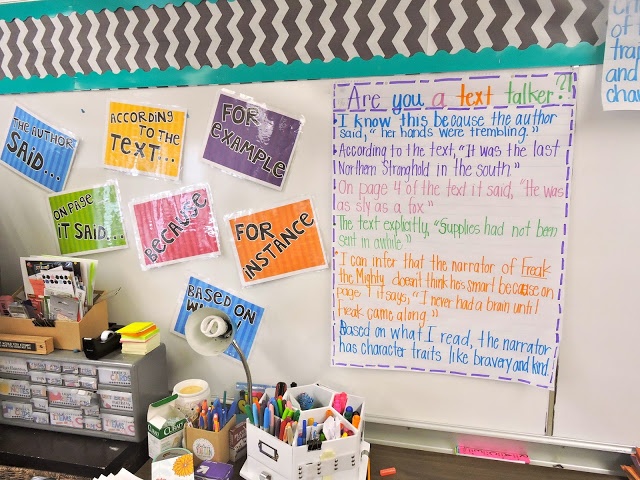 THE AUTHOR
SAID...
ACCORDING
TO THE
TEXT...
FOR
EXAMPLE
ON PAGE
IT SAID...
BECAUSE
FOR
INSTANCE
BASED ON
Are you a text talker?!
I know this because the author
said, "her hands were trembling."
According to the text, "It was the last
Northern Stronghold in the south."
On page 4 of the text it said, "He was
as sly as a fox."
The text explicitly, "Supplies had not been
sent in awhile."
I can infer that the narrator of Freak
the Mighty doesn't think he's smart because on
page 1 it says, "I never had a brain until
freak came along."
Based on what I read, the narrator
has character traits like bravery and kind
of
and